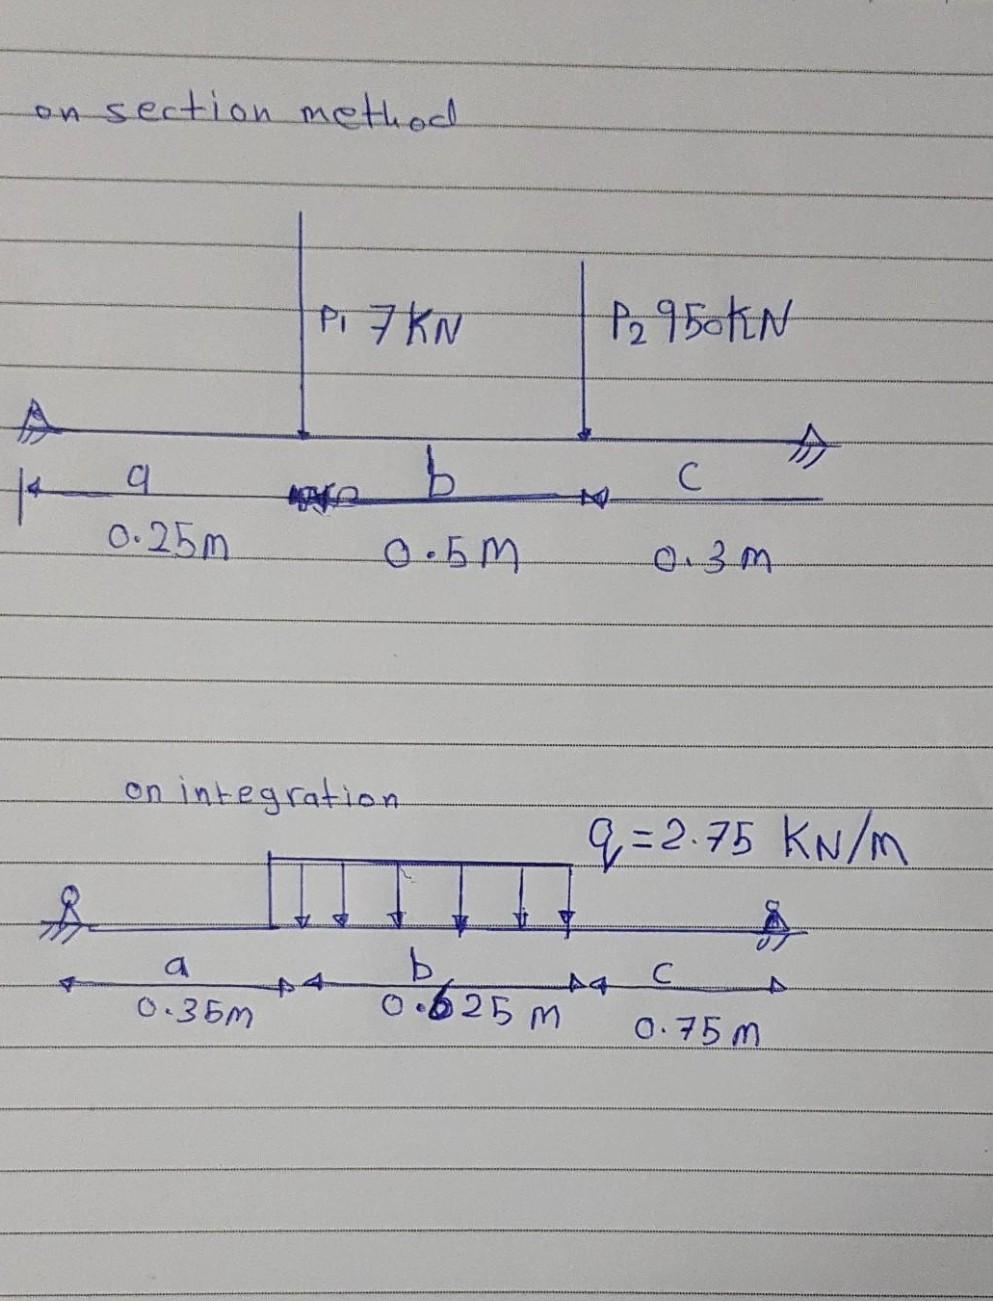 on section method
P1 7 KN P2 950KN
a b c
0.25m 0.5M 0.3m
on integration
q=2.75 KN/m
a b c
0.35m 0.625 m 0.75m